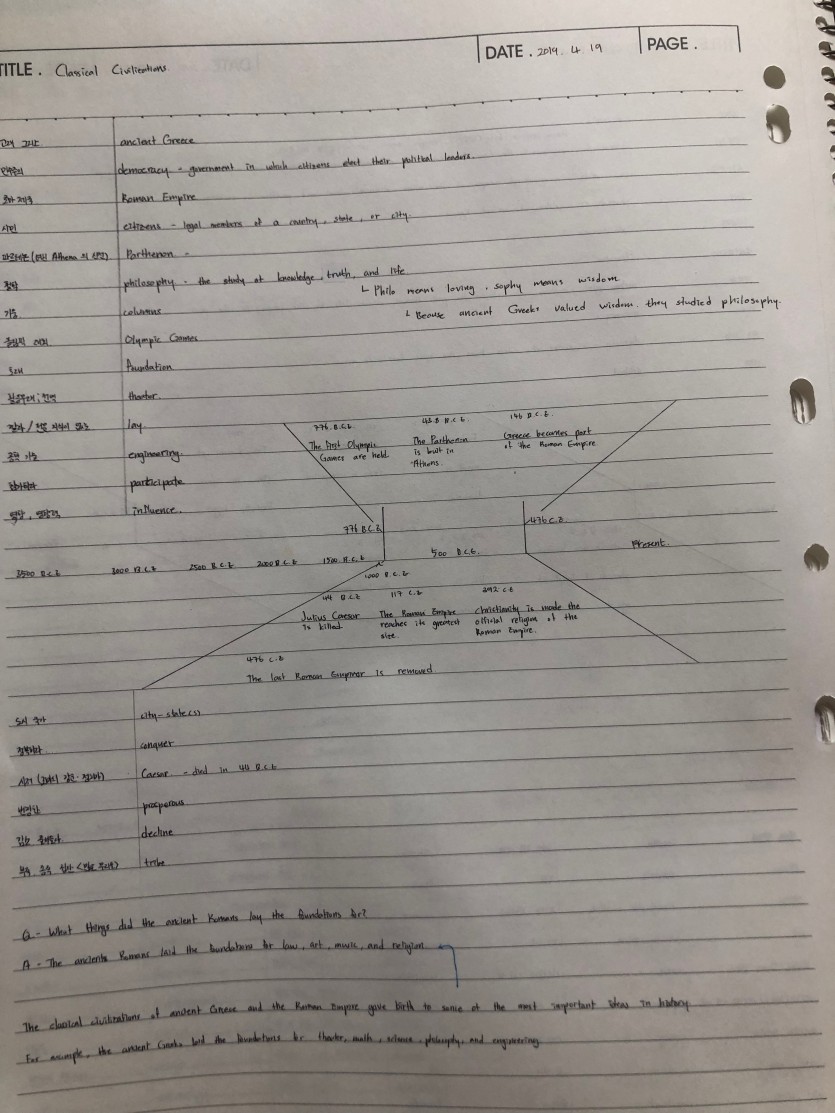 TITLE . Classical Civilizations
DATE . 2019. 4. 19
PAGE .
고대 그리스 ancient Greece
민주주의 democracy - government in which citizens elect their political leaders.
로마 제국 Roman Empire
시민 citizens - legal members of a country, state, or city.
파르테논 (여신 Athena 의 신전) Parthenon -
철학 philosophy - the study of knowledge, truth, and life
└ Philo means loving, sophy means wisdom
기둥 columns
└ Beause ancient Greeks valued wisdom, they studied philosophy.
올림픽 Olympic Games
토대 foundation
theater.
lay
공학 기술 engineering.
참여하다 participate
영향, 영향력 influence.
776 B.C.E.
438 B.C.E.
146 B.C.E.
The first Olympic
Games are held.
The Parthenon
is built in
Athens.
Greece becomes part
of the Roman Empire.
776 B.C.E
476 C.E
3500 B.C.E 3000 B.C.E 2500 B.C.E 2000 B.C.E 1500 B.C.E
1000 B.C.E
500 B.C.E.
Present.
44 B.C.E
117 C.E
392 C.E
Julius Caesar
is killed
The Roman Empire
reaches its greatest
size.
Christianity is made the
official religion of the
Roman Empire.
476 C.E
The last Roman Emperor is removed
도시 국가 city-state(s)
정복하다 conquer
Caesar - died in 44 B.C.E
번영한 prosperous
decline
부족 tribe
Q - What things did the ancient Romans lay the foundations for?
A - The ancients Romans laid the foundations for law, art, music, and religion
The classical civilizations of ancient Greece and the Roman Empire gave birth to some of the most important ideas in history
For example, the ancient Greeks laid the foundations for theater, math, science, philosophy, and engineering